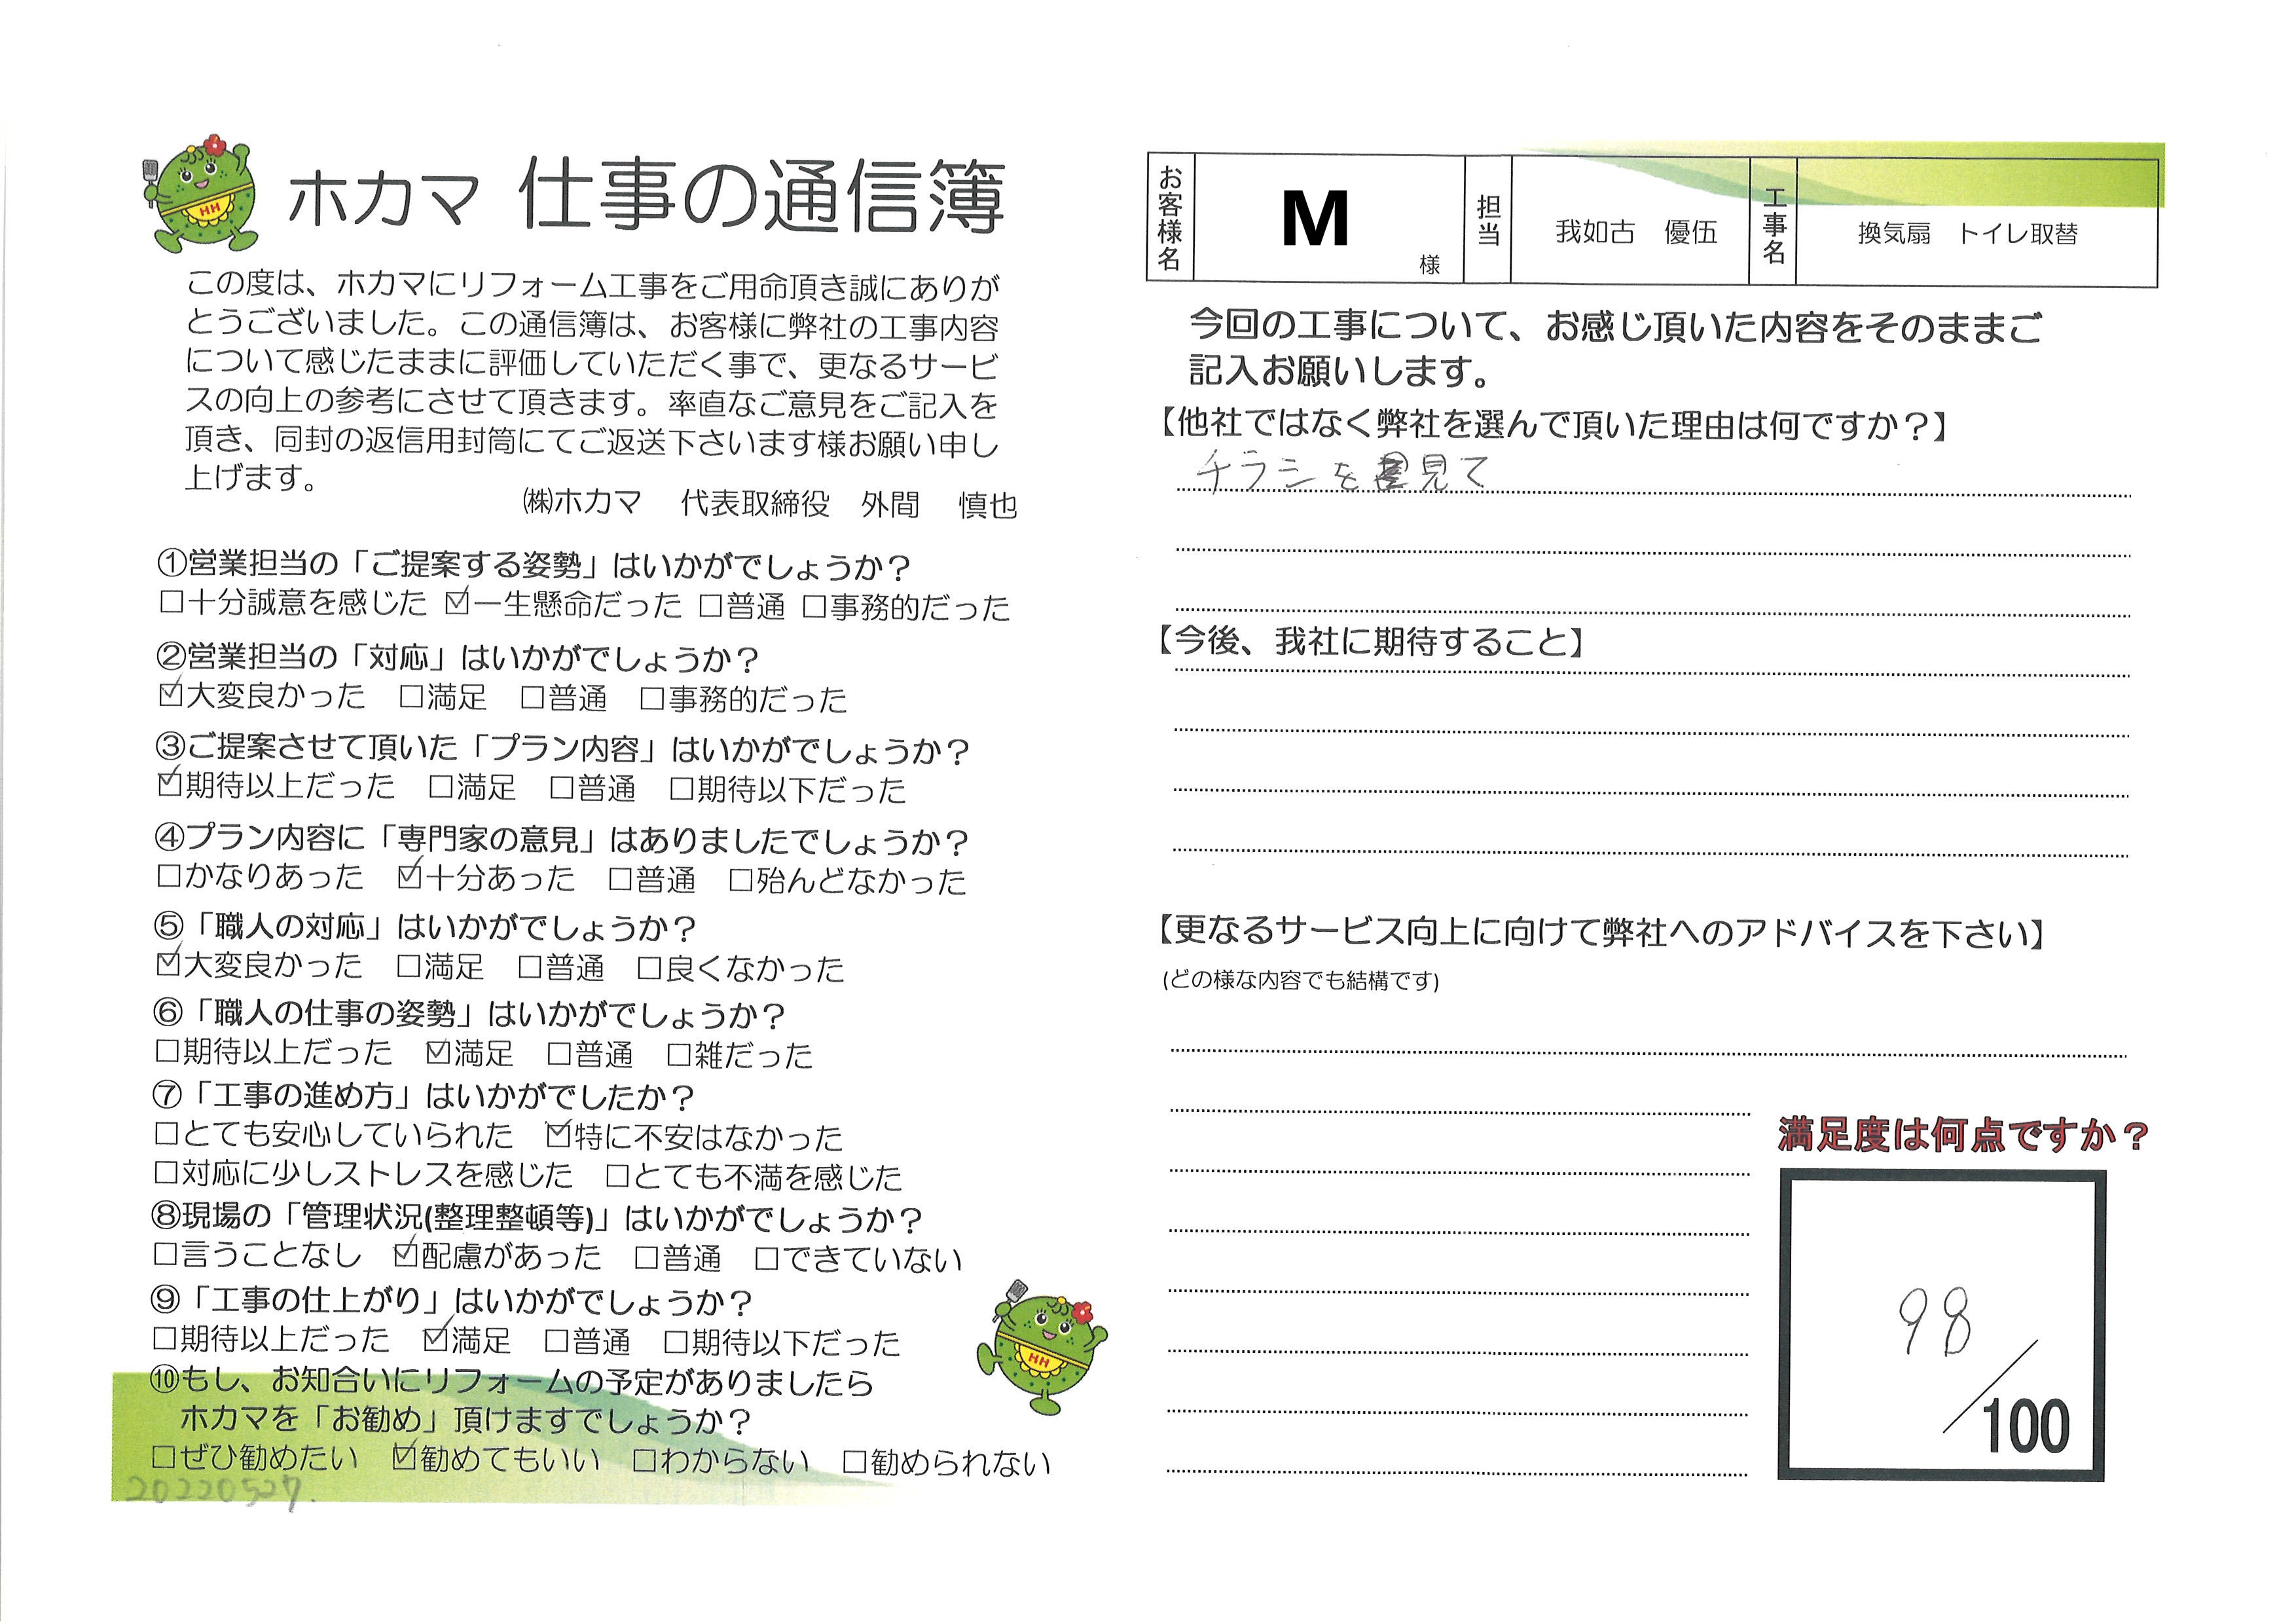 ホカマ 仕事の通信簿
この度は、ホカマにリフォーム工事をご用命頂き誠にありが
とうございました。この通信簿は、お客様に弊社の工事内容
について感じたままに評価していただく事で、更なるサービ
スの向上の参考にさせて頂きます。率直なご意見をご記入を
頂き、同封の返信用封筒にてご返送下さいます様お願い申し
上げます。
㈱ホカマ 代表取締役 外間 慎也
①営業担当の「ご提案する姿勢」はいかがでしょうか？
□十分誠意を感じた ☑一生懸命だった □普通 □事務的だった
②営業担当の「対応」はいかがでしょうか？
☑大変良かった □満足 □普通 □事務的だった
③ご提案させて頂いた「プラン内容」はいかがでしょうか？
☑期待以上だった □満足 □普通 □期待以下だった
④プラン内容に「専門家の意見」はありましたでしょうか？
□かなりあった ☑十分あった □普通 □殆んどなかった
⑤「職人の対応」はいかがでしょうか？
☑大変良かった □満足 □普通 □良くなかった
⑥「職人の仕事の姿勢」はいかがでしょうか？
□期待以上だった ☑満足 □普通 □雑だった
⑦「工事の進め方」はいかがでしたか？
□とても安心していられた ☑特に不安はなかった
□対応に少しストレスを感じた □とても不満を感じた
⑧現場の「管理状況(整理整頓等)」はいかがでしょうか？
□言うことなし ☑配慮があった □普通 □できていない
⑨「工事の仕上がり」はいかがでしょうか？
□期待以上だった ☑満足 □普通 □期待以下だった
⑩もし、お知合いにリフォームの予定がありましたら
ホカマを「お勧め」頂けますでしょうか？
□ぜひ勧めたい ☑勧めてもいい □わからない □勧められない
20220527.
HH
HH
お客様名 M 様 担当 我如古 優伍 工事名 換気扇 トイレ取替
今回の工事について、お感じ頂いた内容をそのままご
記入お願いします。
【他社ではなく弊社を選んで頂いた理由は何ですか？】
チラシを見て
【今後、我社に期待すること】
【更なるサービス向上に向けて弊社へのアドバイスを下さい】
(どの様な内容でも結構です)
満足度は何点ですか？
98
/100